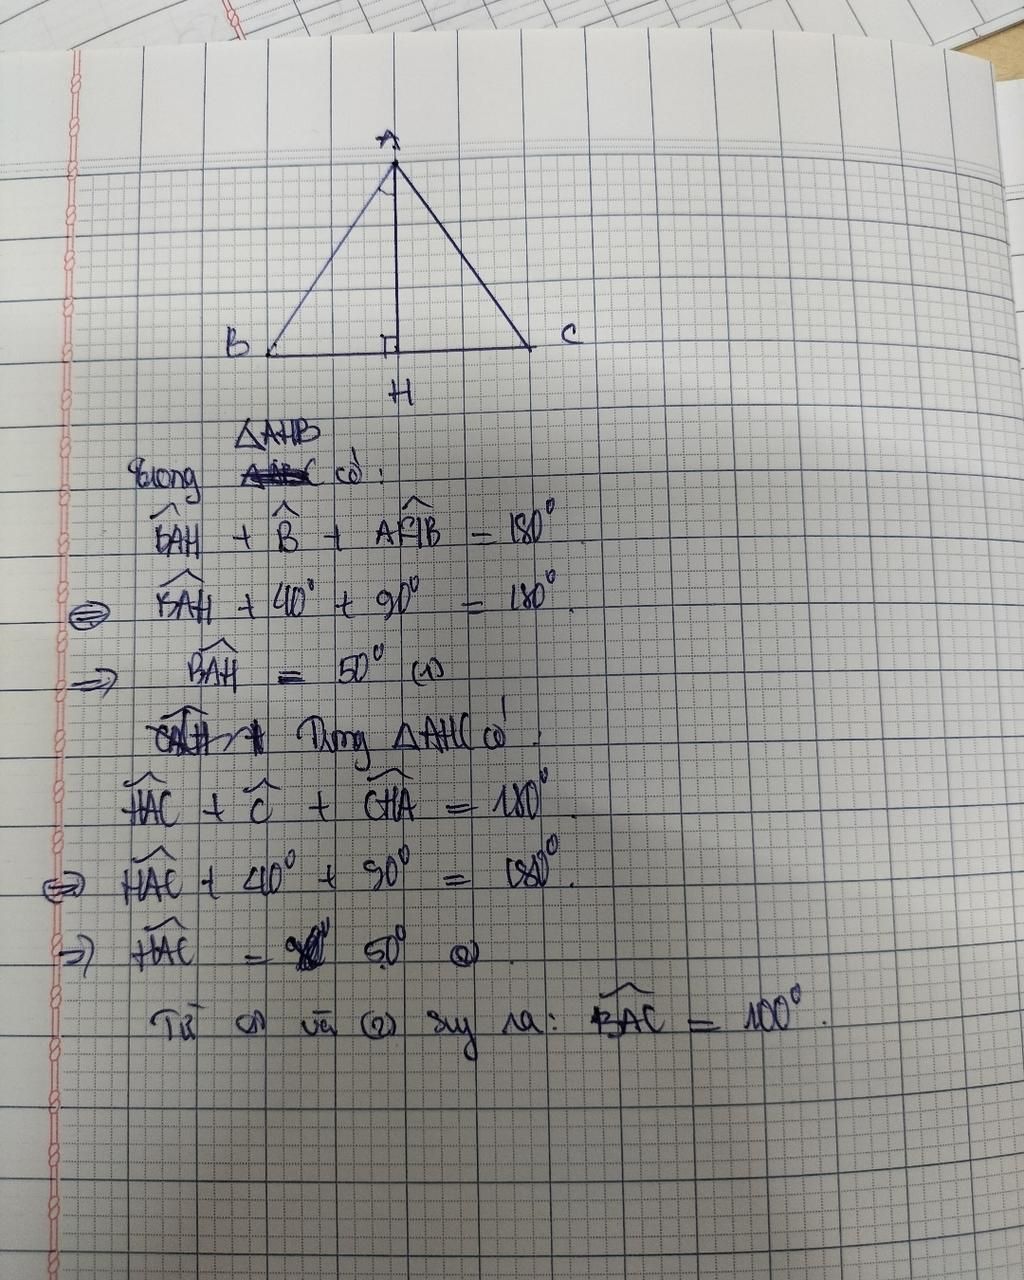 A
B
C
H
△AHB
Trong có:
BAH + B + AHB = 180°
⇔ BAH + 40° + 90° = 180°.
⇒ BAH = 50° (1)
Trong △AHC có:
HAC + C + CHA = 180°.
⇔ HAC + 40° + 90° = 180°.
⇒ HAC = 50° (2).
Từ (1) và (2) suy ra: BAC = 100°.